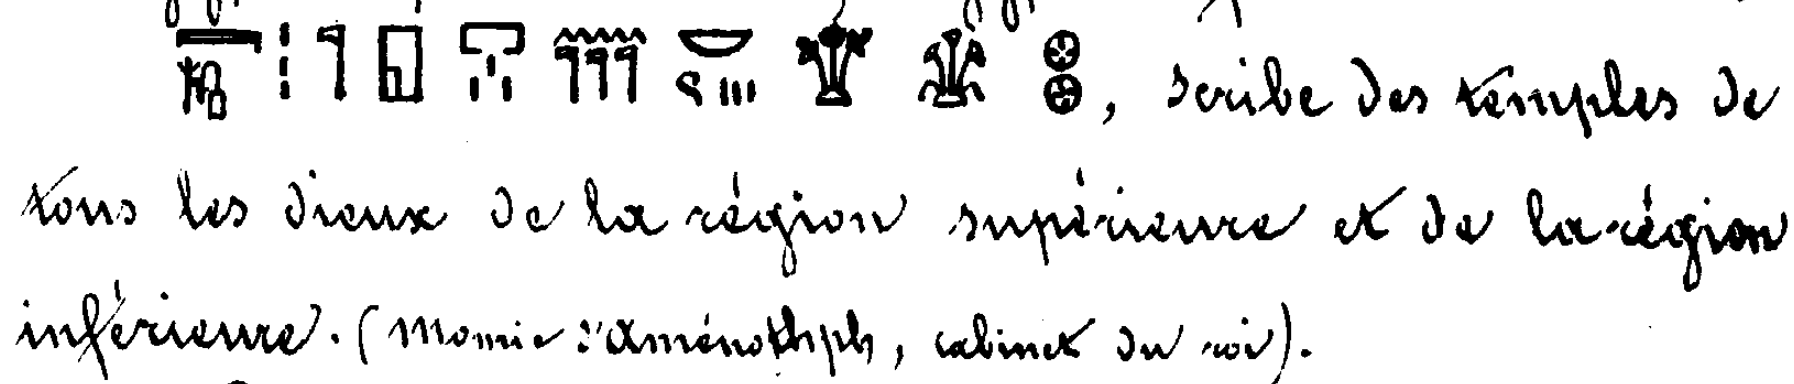 , scribe des temples de
tous les dieux de la région supérieure et de la région
inférieure. (Momie d'Aménothph, cabinet du roi).